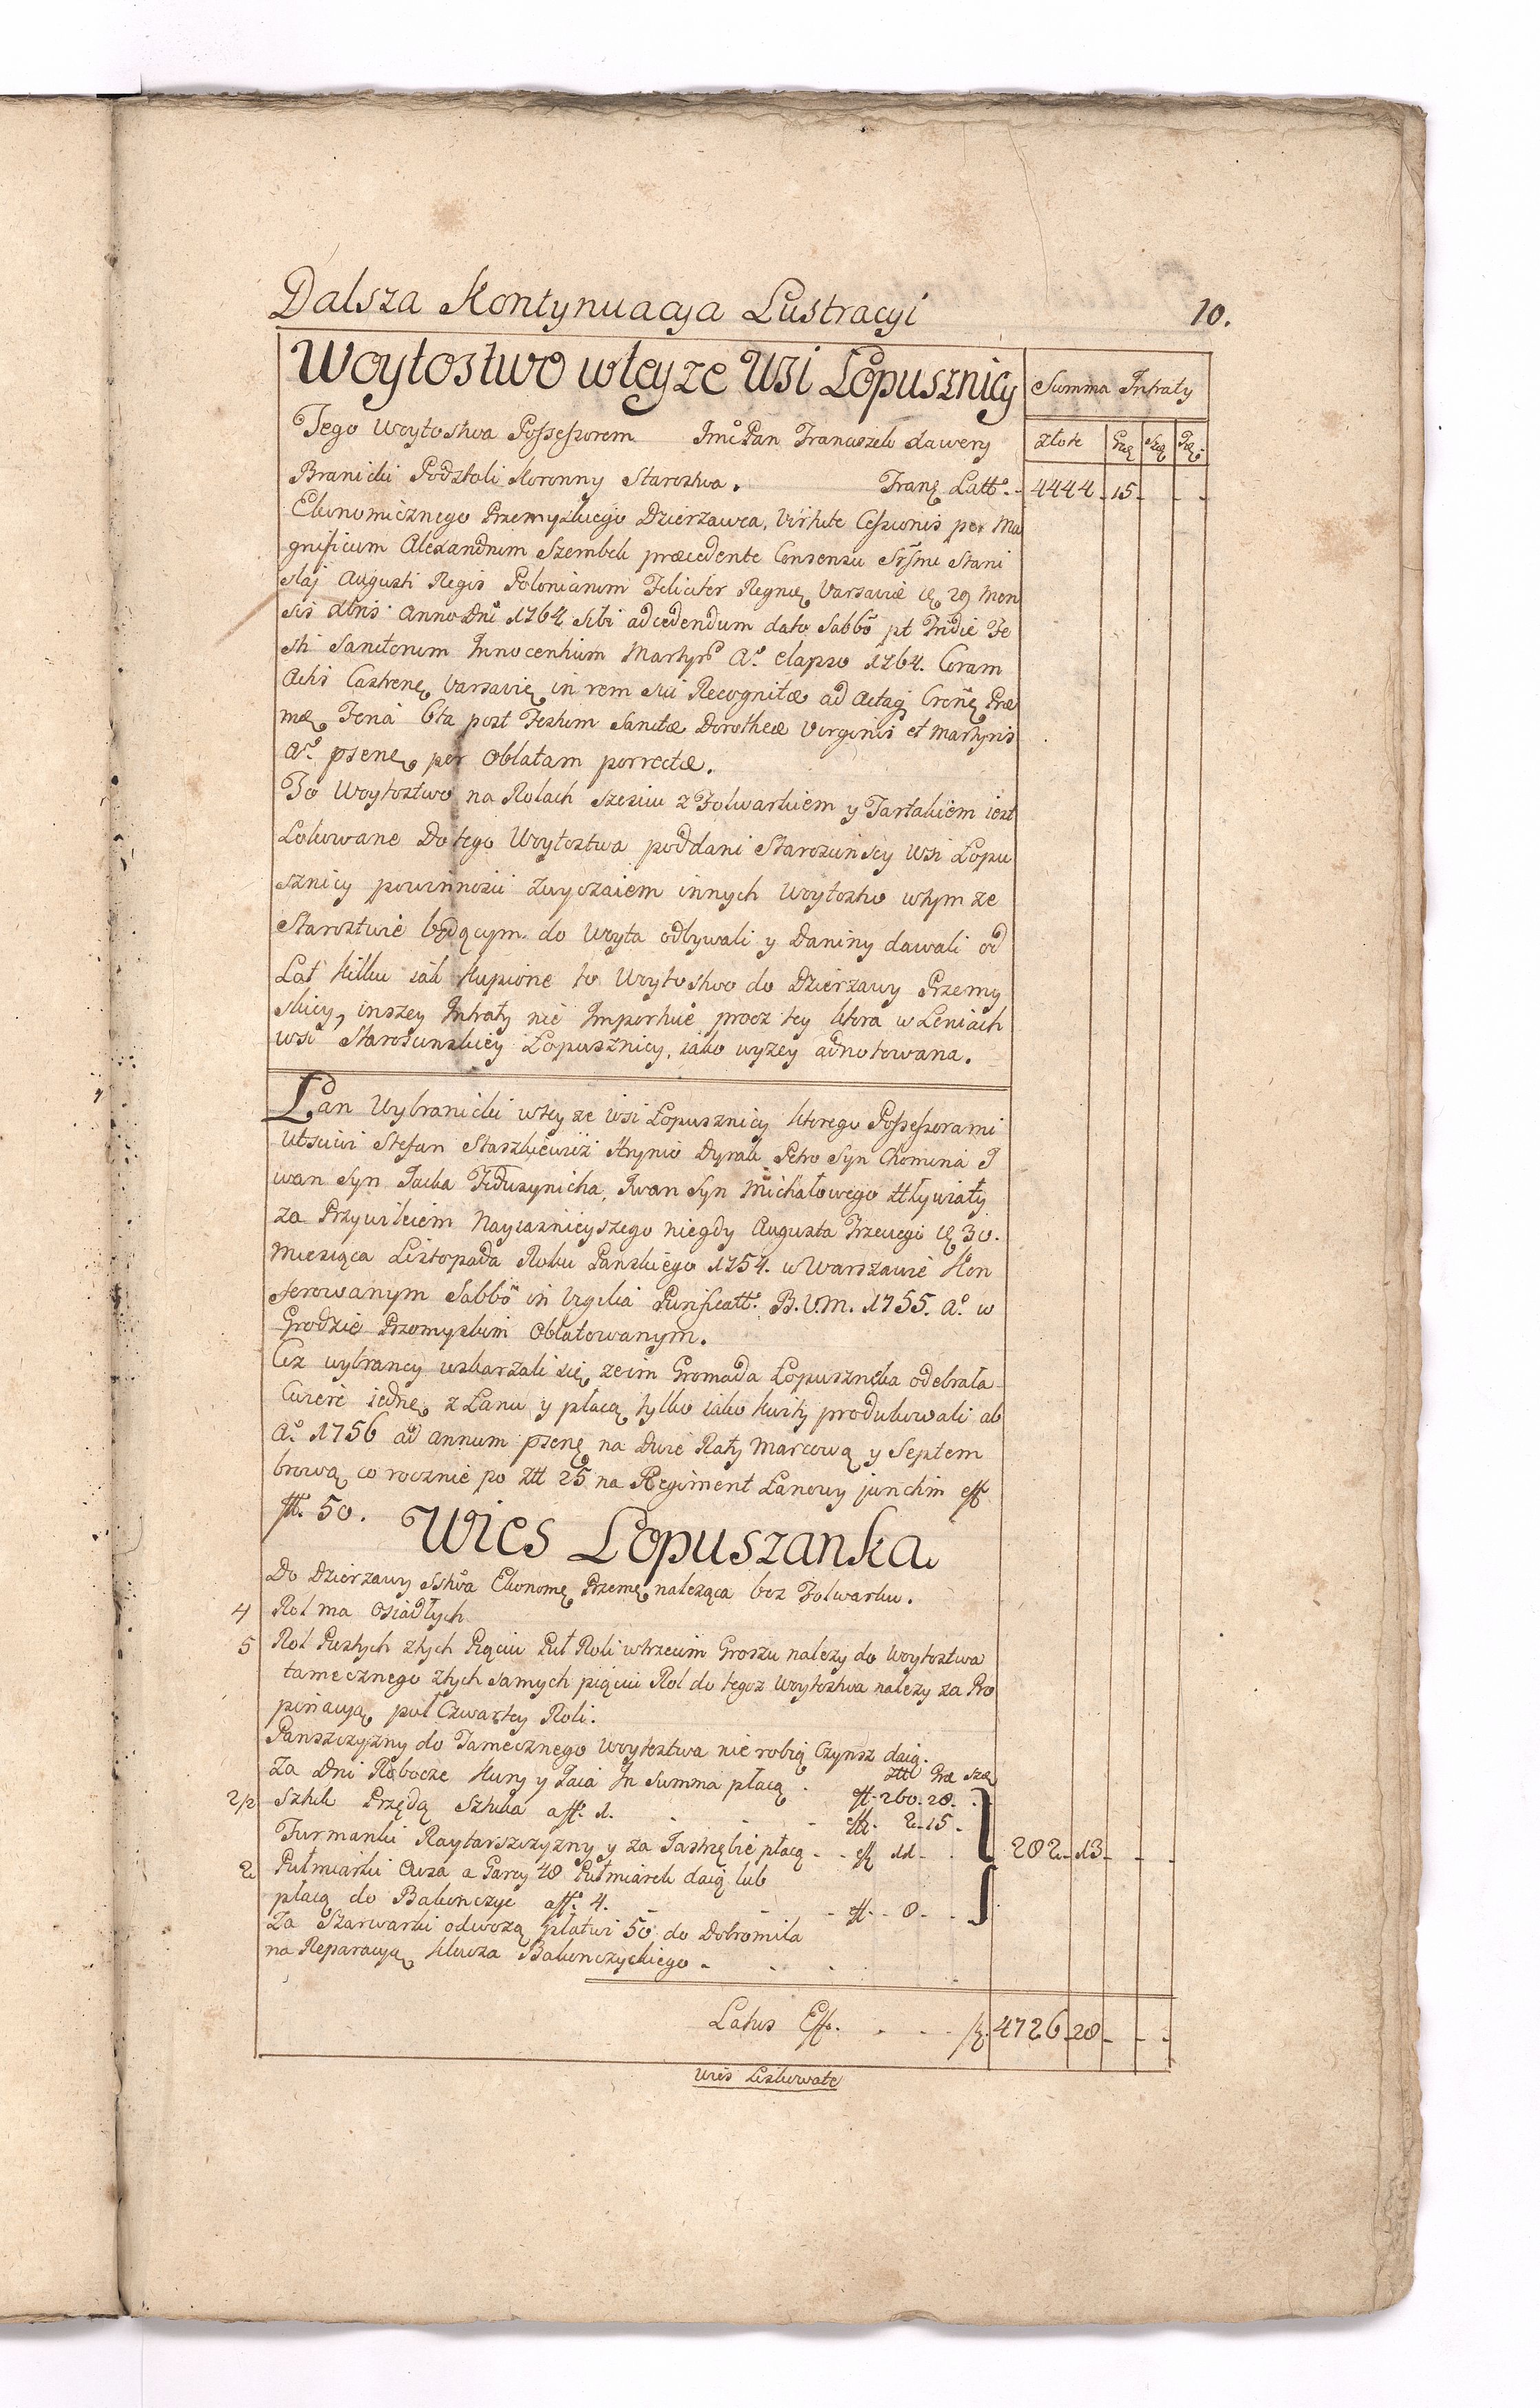 Dalsza Kontynuacya Lustracyi 10.
Woytostwo wteyze Wsi Łopusznicy
Summa Intraty
Tego Woytostwa Possessorem Jmć Pan Franciszek Xawery
złote Grę Szę
Branicki Podstoli Koronny Starostwa. Tranę Latto. 4444 15
Ekonomicznego Przemyskiego Dzierzawca, Virtute Cessionis per Ma
gnificum Alexandrum Szembek præcedente Consensu Sřsmi Stani
slaj Augusti Regis Poloniarum Feliciter Regnę Varsaviæ 29 Men
sis Xbris Anno Dni 1764 sibi ad cedendum dato Sabbõ pt Fe
sti Sanctorum Innocentium Martyr Ao. elapso 1764. Coram
Actis Castrenę Varsavię in rem sui Recognitæ ad Cronę Præ
mę Feriâ 6ta post Festum Sanctæ Dorotheæ Virginis et Martyris
Ao. psenę per Oblatam porrectæ.
To Woytostwo na Rolach Sześciu z Folwarkiem y Tartakiem iest
Lokowane Do tego Woytostwa poddani Starościńscy Wsi Łopu
sznicy powinności zwyczaiem innych Woytostw wtym ze
Starostwie będącym do Woyta odbywali y Daniny dawali od
Lat kilku iak kupione to Woytostwo do Dzierzawy Przemy
skiey, inszey Intraty nie Importuie procz tey ktora w Leniach
wsi Starościnskiey Łopusznicy, iako wyzey adnotowana.
Łan Wybraniecki wtey ze wsi Łopusznicy ktorego Possessorami
Stefan Staszkiewicz Hrynio Dyrak Petro Syn Chomina I
wan Syn Iacka Iwan Syn Michałowego
za Przywileiem Nayiasnieyszego niegdy Augusta Trzeciego 30.
Miesiąca Listopada Roku Panskiego 1754. w Warszawie Kon
ferowanym Sabbõ in Vigilia Purificatt. B.V.M. 1755. Ao. w
Grodzie Przemyskim Oblatowanym.
Ciz wybrancy uskarzali się, ze im Gromada Łopusznicka odebrała
Cwierć iednę z Łanu y płacą tylko iako kwity produkowali ab
Ao. 1756 ad annum psenę na Dwie Raty Marcową y Septem
brową co rocznie po Ztt 25 na Regiment Łanowy junctim eff
ff. 50.
Wies Łopuszanka
Do Dzierzawy Sstwa Ekonomę Przemę należąca bez Folwarku.
4 Rol ma Osiadłych
5 Rol Pustych ztych Pięciu Puł Roli wtrzecim Groszu nalezy do Woytostwa
tamecznego ztych samych pięciu Rol do tegoz Woytostwa nalezy za Pro
pinacyą pul Czwartey Roli.
Panszczyzny do Tamecznego Woytostwa nie robią Czynsz daią.
Ztt Grę Szę
Za Dni Robocze kury y Iaia In Summa płacą ff. 260. 28.
2/2 Sztuk Przędą Sztuka a ff. 1. ff. 2. 15.
Furmanki Raytarszczyzny y za Iastrzębie płacą ff 11 282 13
2 Pułmiarki Owsa a Garcy 48 Pułmiarek daią lub
płacą do Bakonczyc a ff. 4. ff. 8.
Za Szarwarki odwozą płatwi 50 do Dobromila
na Reparacyą klucza Bakonczyckiego.
Latus Eff. 4726 28
Wies Liskowate